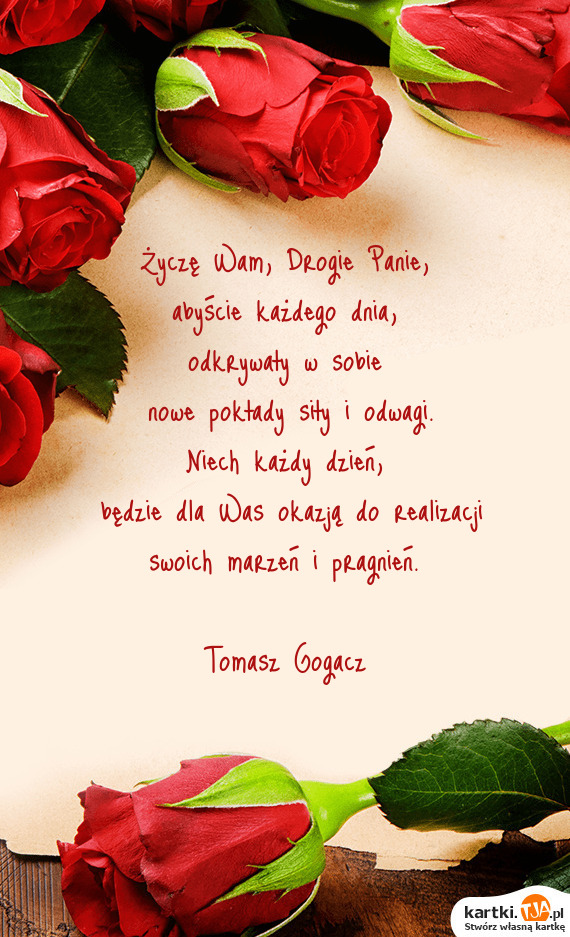 Życzę Wam, Drogie Panie,
abyście każdego dnia,
odkrywały w sobie
nowe pokłady siły i odwagi.
Niech każdy dzień,
będzie dla Was okazją do realizacji
swoich marzeń i pragnień.
Tomasz Gogacz
kartki.TJA.pl
Stwórz własną kartkę